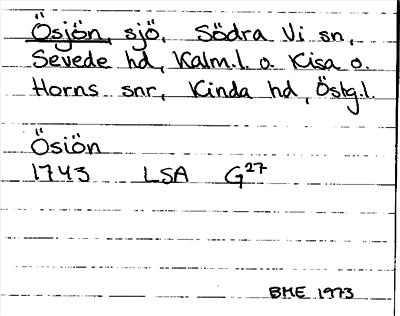 Ösjön, sjö, Södra Vi sn,
Sevede hd, Kalm.l. o. Kisa o.
Horns snr, Kinda hd, Östg.l.
Ösiön
1743 LSA G27
BME 1973